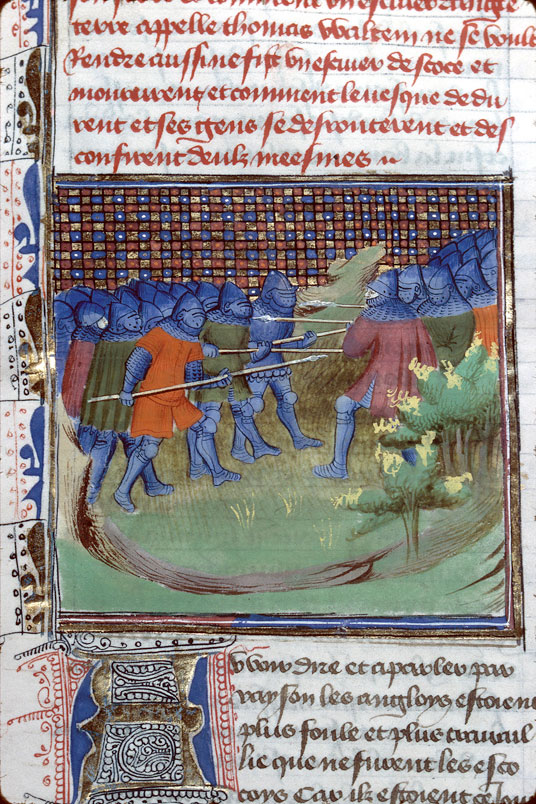 terre appelle thomas Waltem ne se voult
Rendre aussi ne fist vnescuier descoce et
moururent et comment leuesque de du
rent et ses gens se desrouterent et des
confirent deulz meesmes
Vour dire et a parler par
raison les angloys estoient
plus foule et plus trauail
lie que ne furent les esco
coys Car ilz estoient